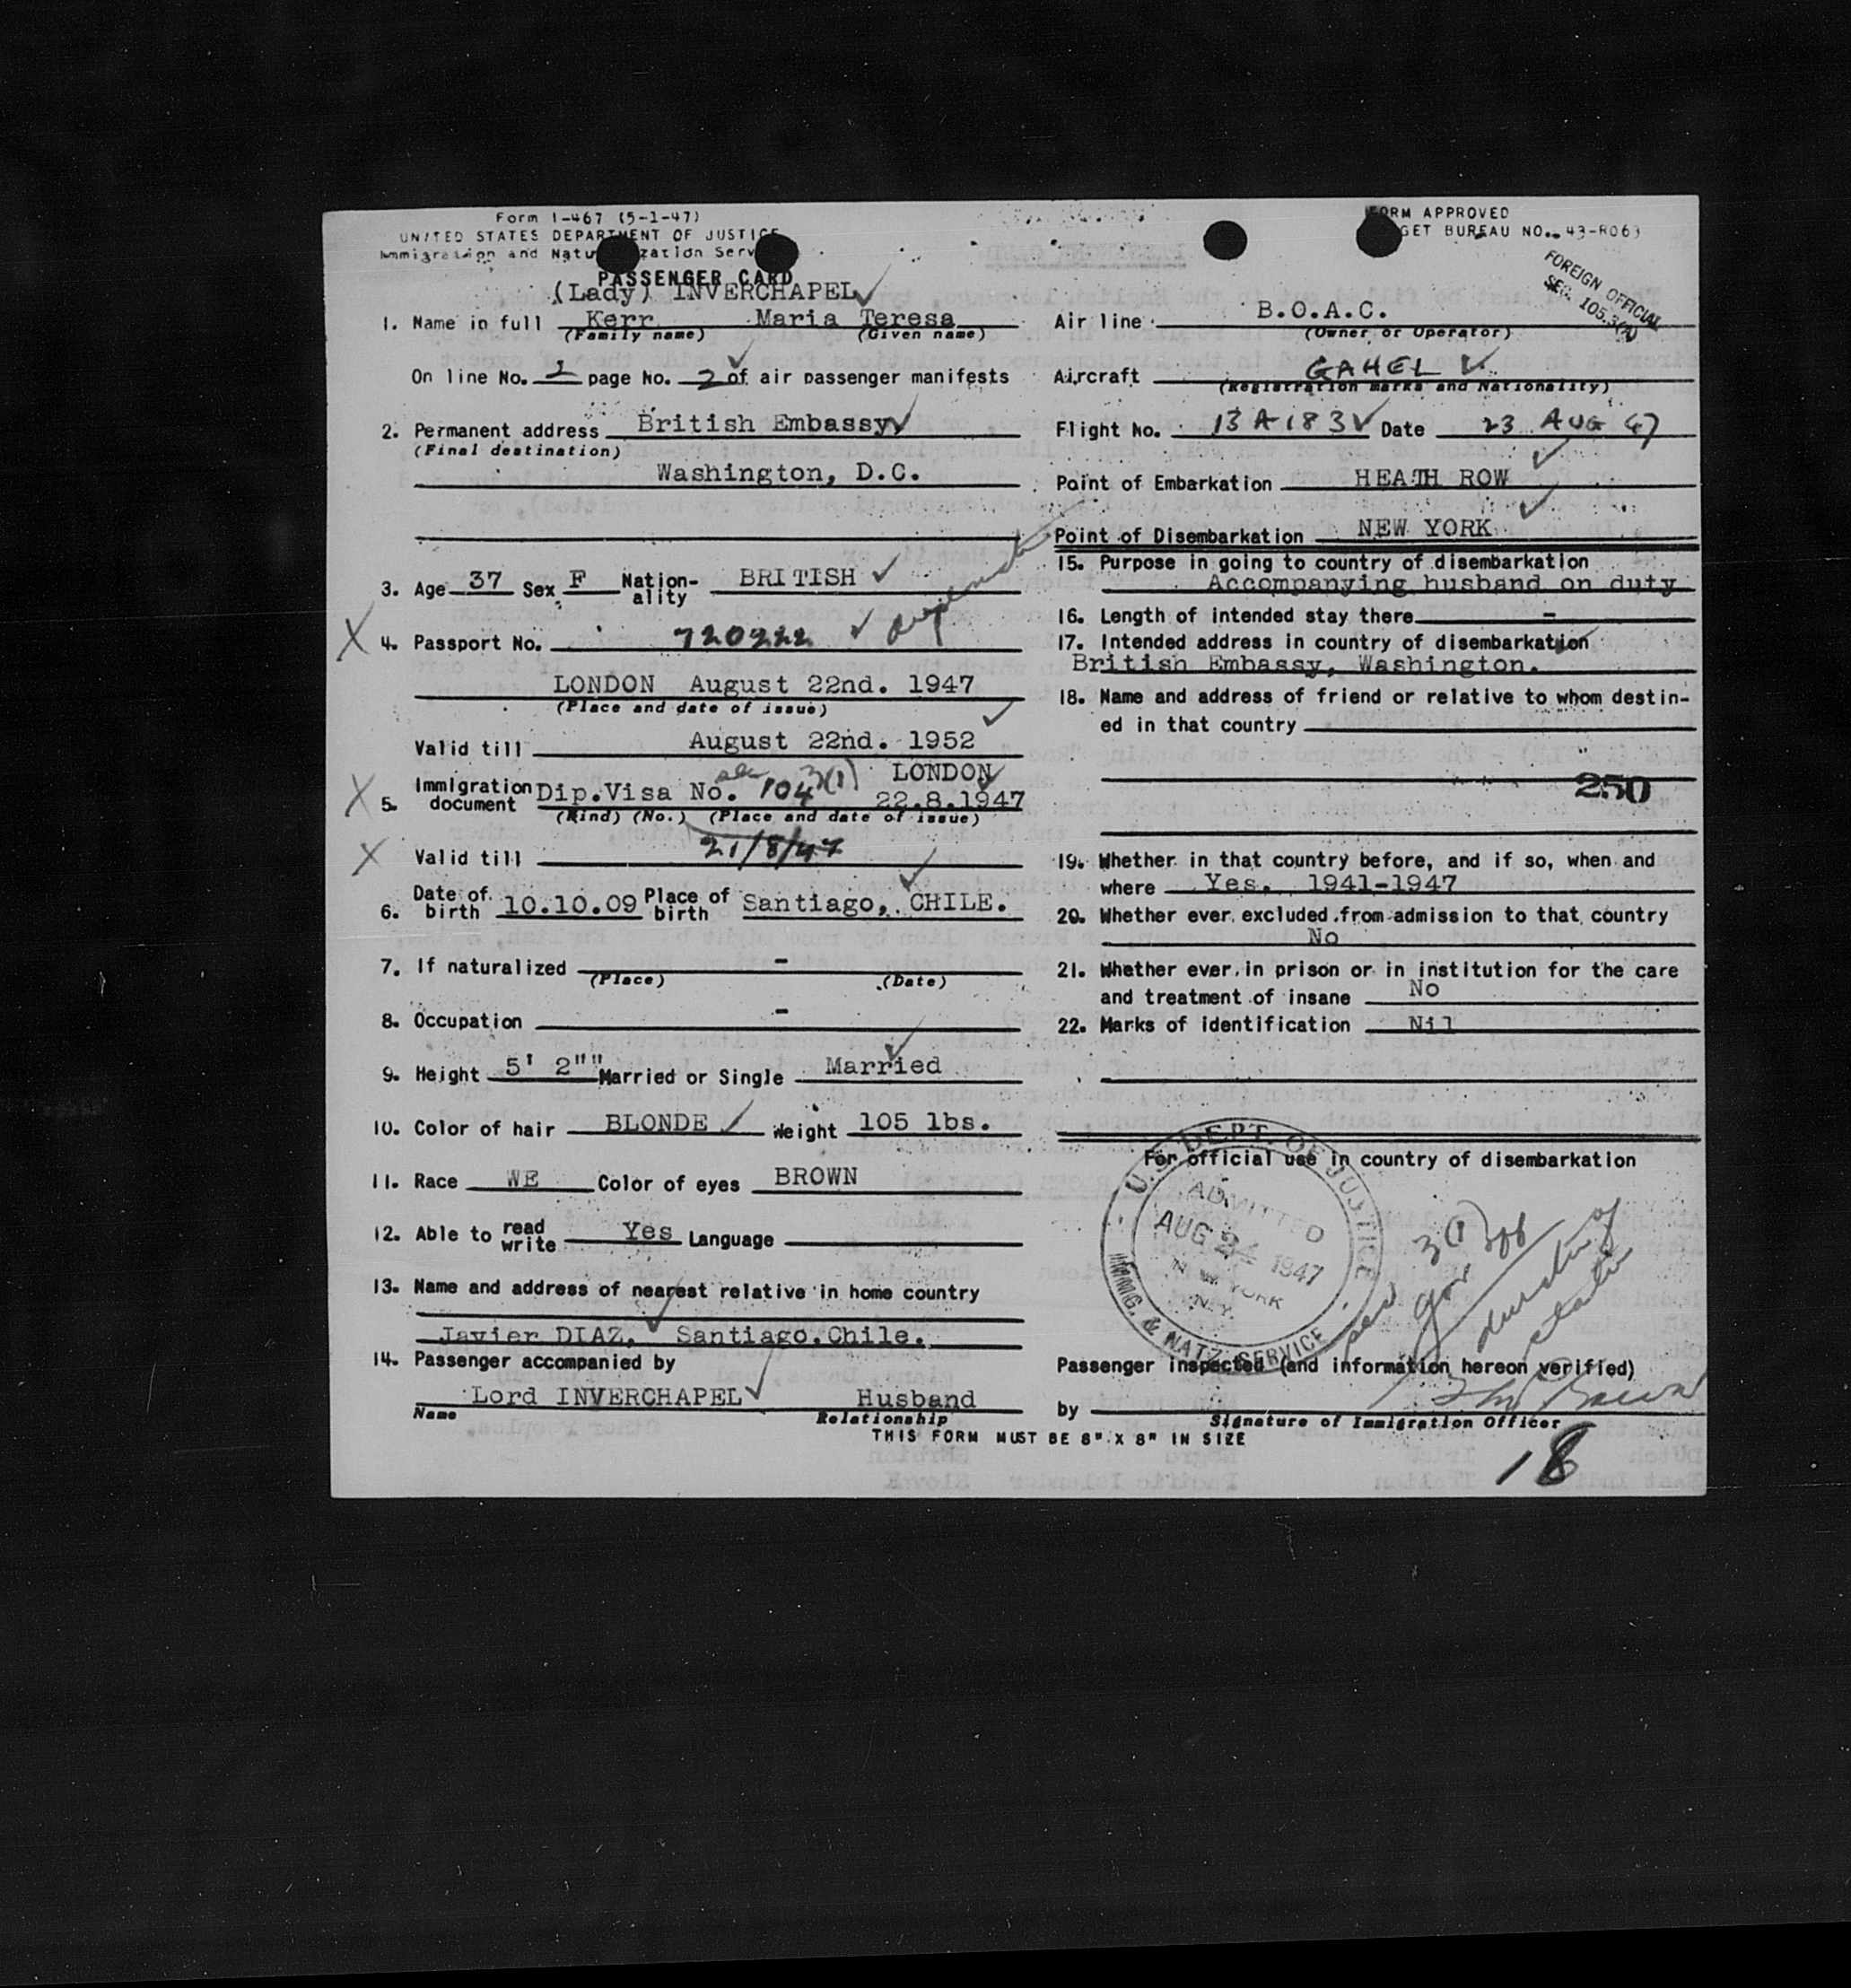 Form I-467 (5-1-47)
UNITED STATES DEPARTMENT OF JUSTICE
Immigration and Natu zation Serv
PASSENGER CARD
FORM APPROVED
GET BUREAU NO. 43-R063
FOREIGN OFFICIAL
SEC. 105.3(A)
(Lady) INVERCHAPEL
1. Name in full Kerr Maria Teresa
(Family name) (Given name)
On line No. page No. 2 of air passenger manifests
2. Permanent address British Embassy
(Final destination)
Washington, D.C.
3. Age 37 Sex F Nation-ality BRITISH
4. Passport No. 720222
Diplomatic
LONDON August 22nd. 1947
(Place and date of issue)
Valid till August 22nd. 1952
5. Immigration document Dip.Visa No. 104 3(1) LONDON
22.8.1947
(Kind) (No.) (Place and date of issue)
Valid till 21/8/47
6. Date of birth 10.10.09 Place of birth Santiago, CHILE.
7. If naturalized -
(Place) (Date)
8. Occupation -
9. Height 5' 2"" Married or Single Married
10. Color of hair BLONDE Weight 105 lbs.
11. Race WE Color of eyes BROWN
12. Able to read write Yes Language
13. Name and address of nearest relative in home country
Javier DIAZ, Santiago.Chile.
14. Passenger accompanied by
Lord INVERCHAPEL Husband
Name Relationship
THIS FORM MUST BE 8" X 8" IN SIZE
Air line B.O.A.C.
(Owner or Operator)
Aircraft GAHEL
(Registration marks and Nationality)
Flight No. 13A183 Date 23 AUG 47
Point of Embarkation HEATH ROW
Point of Disembarkation NEW YORK
15. Purpose in going to country of disembarkation
Accompanying husband on duty
16. Length of intended stay there -
17. Intended address in country of disembarkation
British Embassy, Washington.
18. Name and address of friend or relative to whom destin-
ed in that country
"
250
19. Whether in that country before, and if so, when and
where Yes. 1941-1947
20. Whether ever excluded from admission to that country
No
21. Whether ever in prison or in institution for the care
and treatment of insane No
22. Marks of identification Nil
For official use in country of disembarkation
U.S. DEPT. OF JUSTICE
ADMITTED
AUG 24 1947
NEW YORK
N.Y.
IMMG. & NATZ. SERVICE
sec 3(1)
duration of
status
Passenger inspected (and information hereon verified)
by Brown
Signature of Immigration Officer
18